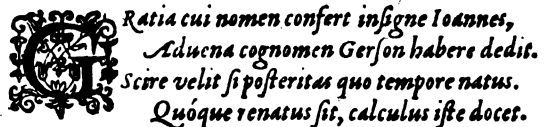 GRatia cui nomen confert insigne Ioannes,
Aduena cognomen Gerson habere dedit.
Scire velit si posteritas quo tempore natus.
Quóque renatus sit, calculus iste docet.